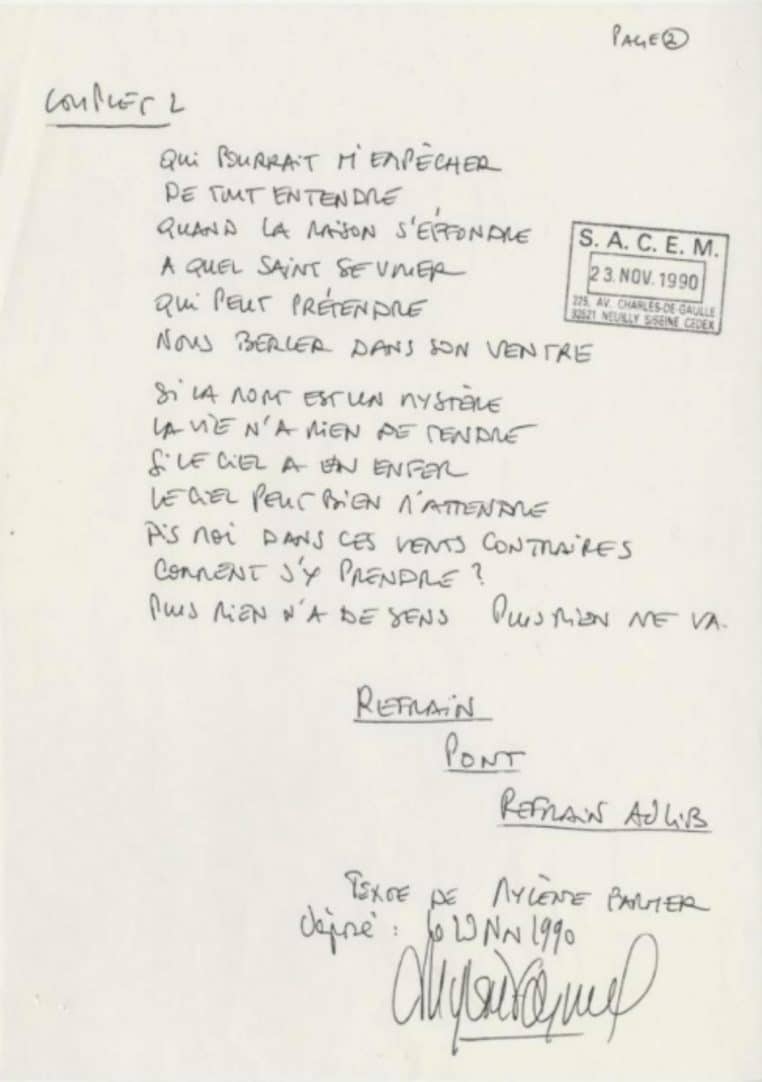 PAGE 2
COUPLET 2
QUI POURRAIT M'EMPÊCHER
DE TOUT ENTENDRE
QUAND LA RAISON S'EFFONDRE
A QUEL SAINT SE VOUER
QUI PEUT PRÉTENDRE
NOUS BERCER DANS SON VENTRE
SI LA MORT EST UN MYSTÈRE
LA VIE N'A RIEN DE TENDRE
SI LE CIEL A UN ENFER
LE CIEL PEUT BIEN M'ATTENDRE
DIS MOI DANS CES VENTS CONTRAIRES
COMMENT S'Y PRENDRE ?
PLUS RIEN N'A DE SENS PLUS RIEN NE VA.
S. A. C. E. M.
23. NOV. 1990
225, AV. CHARLES-DE-GAULLE
92521 NEUILLY S/SEINE CEDEX
REFRAIN
PONT
REFRAIN AD LIB
TEXTE DE MYLÈNE FARMER
déposé : le 23 NOV 1990